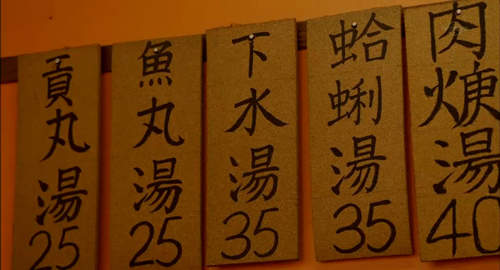 貢丸湯25
魚丸湯25
下水湯35
蛤蜊湯35
肉焿湯40